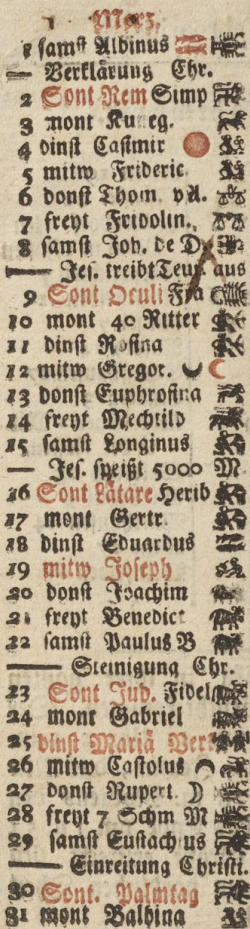 Merz.
1 samst Albinus
— Verklärung Chr.
2 Sont Rem Simp
3 mont Kuneg.
4 dinst Casimir
5 mitw Frideric
6 donst Thom. v A.
7 freyt Fridolin.
8 samst Joh. de D.
— Jes. treibt Teuf. aus
9 Sont Oculi Fra
10 mont 40 Ritter
11 dinst Rosina
12 mitw Gregor.
13 donst Euphrosina
14 freyt Mechtild
15 samst Longinus
— Jes. speißt 5000 M.
16 Sont Lätare Herib
17 mont Gertr.
18 dinst Eduardus
19 mitw Joseph
20 donst Joachim
21 freyt Benedict
22 samst Paulus B
— Steinigung Chr.
23 Sont Jud. Fidel
24 mont Gabriel
25 dinst Mariä Verk
26 mitw Castolus
27 donst Rupert.
28 freyt 7 Schm M
29 samst Eustachius
— Einreitung Christi.
30 Sont. Palmtag
31 mont Balbina